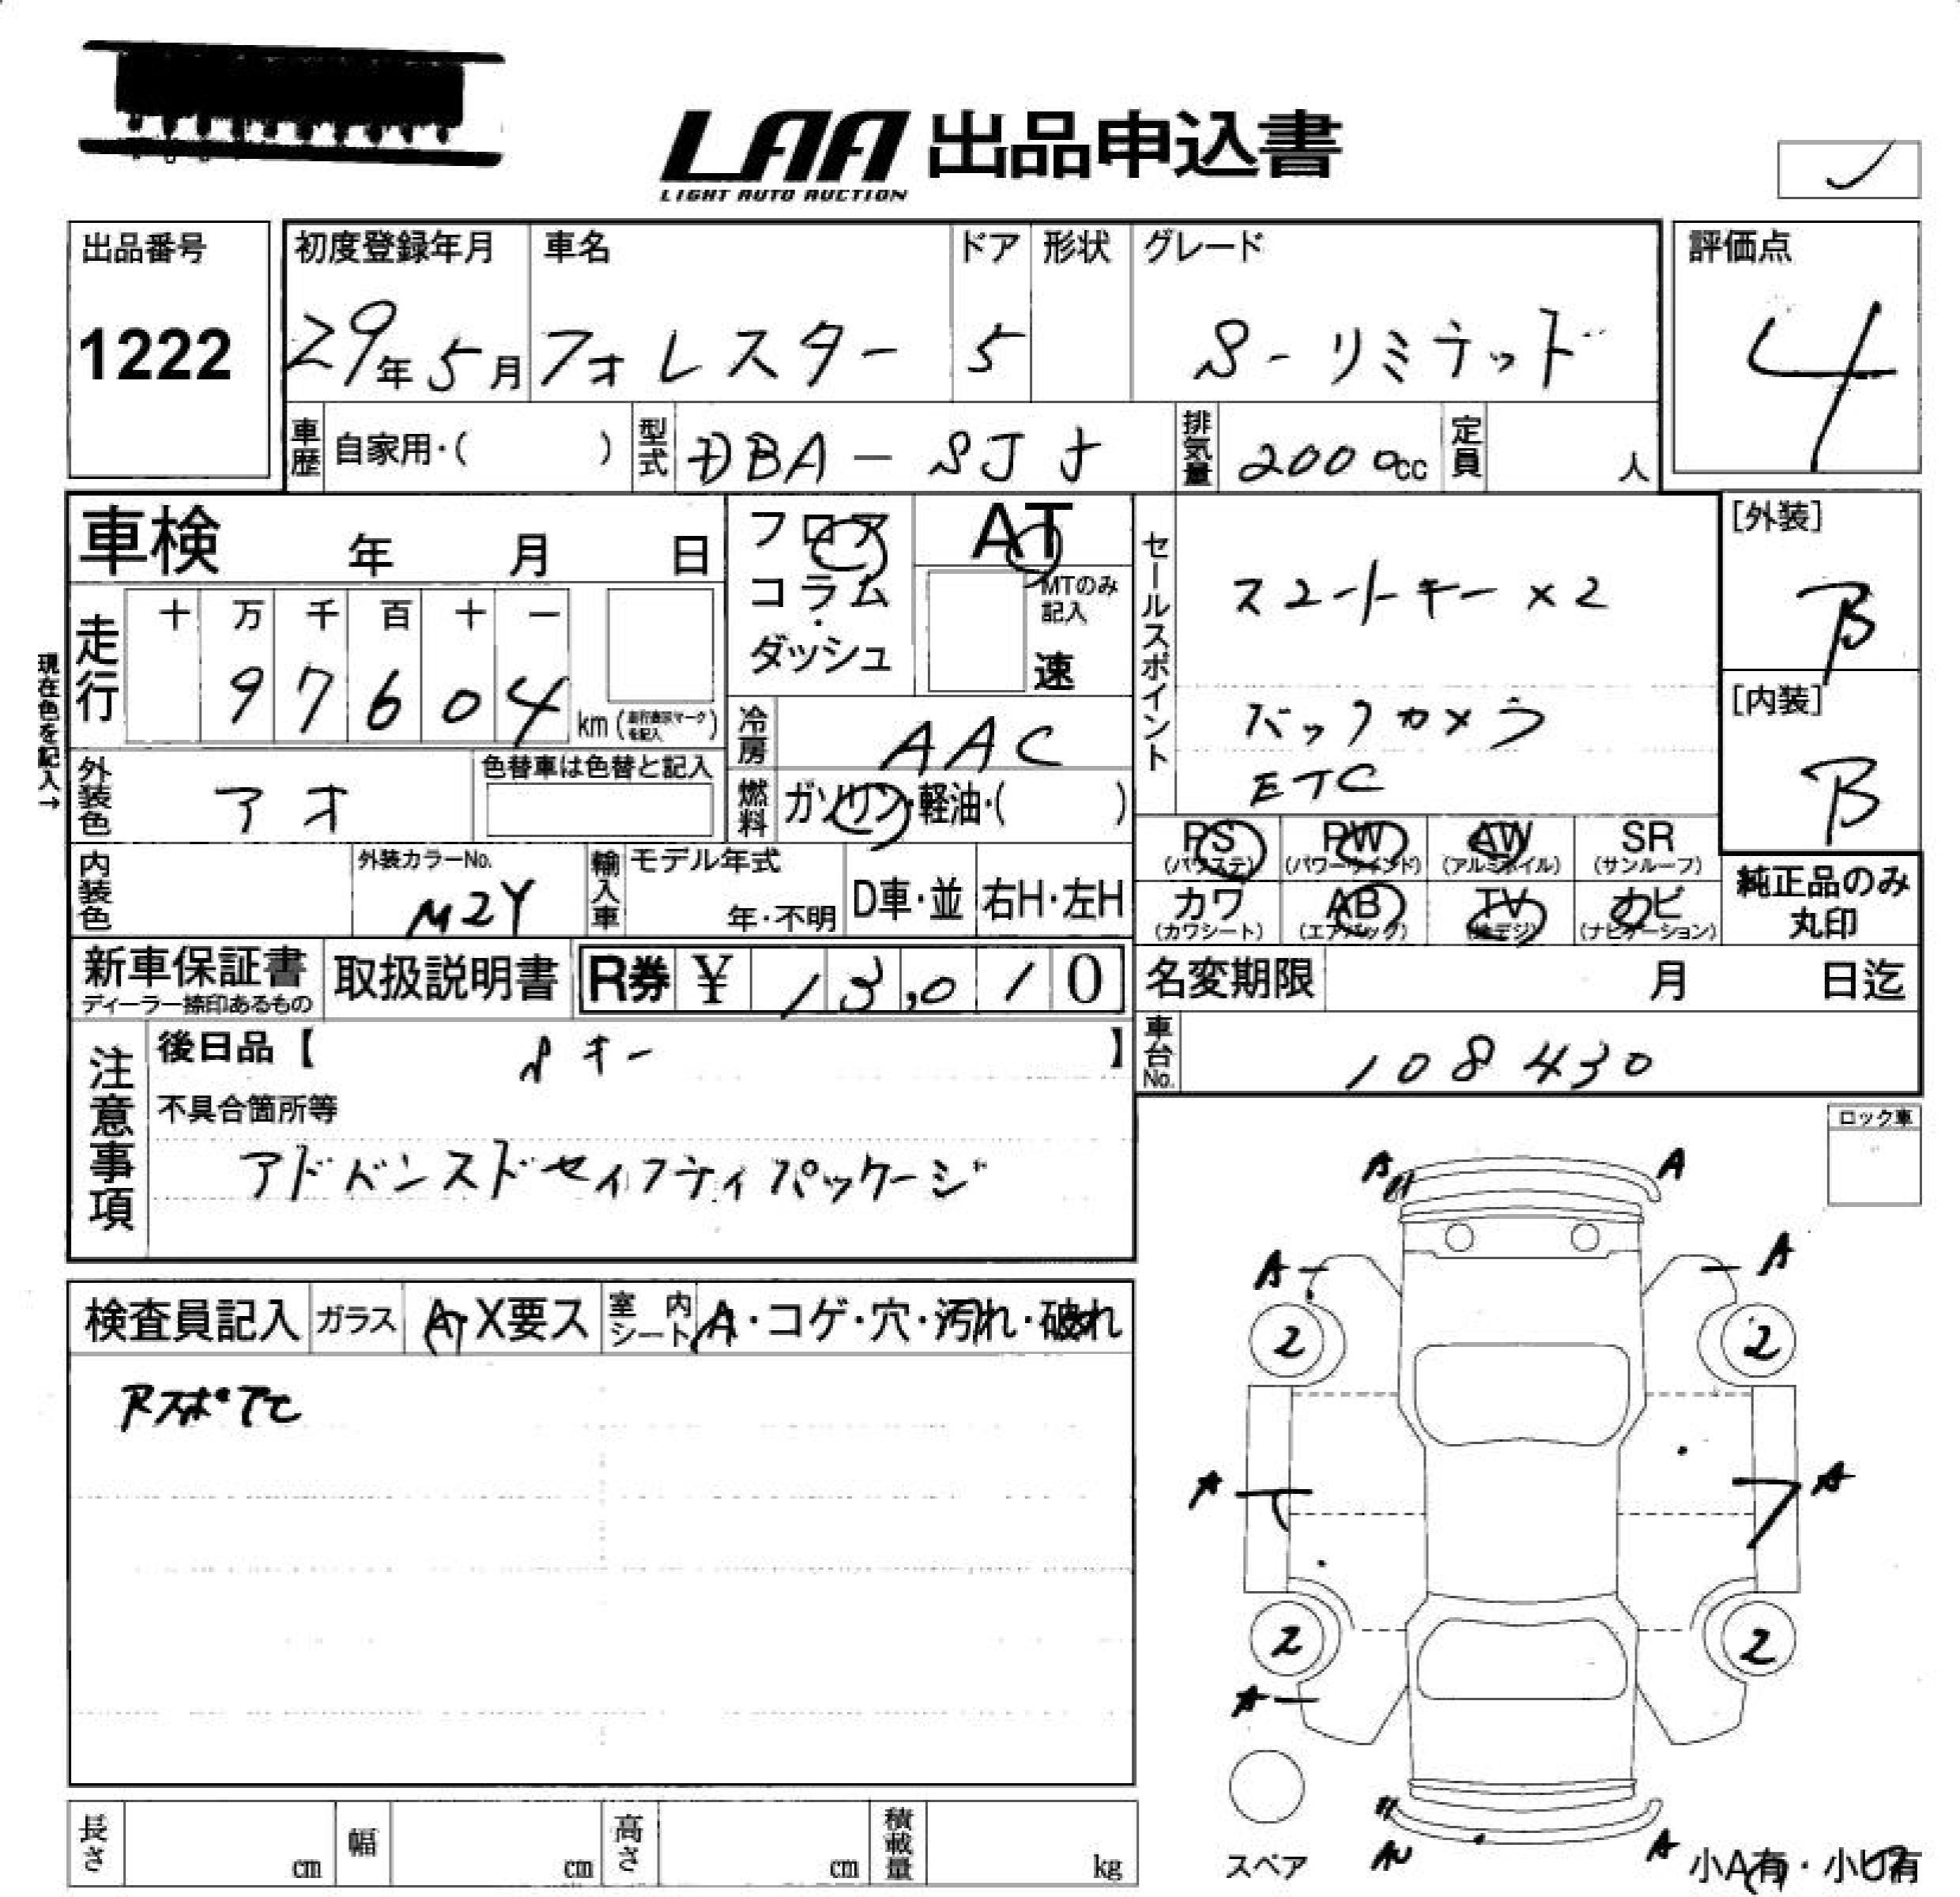 LAA 出品申込書
LIGHT AUTO AUCTION
出品番号
1222
初度登録年月
29年5月
車名
フォレスター
ドア
5
形状
グレード
S-リミテッド
評価点
4
車歴
自家用・( )
型式
DBA-SJ
排気量
2000cc
定員
人
車検 年 月 日
フロア
コラム
ダッシュ
AT
MTのみ記入
速
セールスポイント
スマートキー×2
バックカメラ
ETC
[外装]
B
[内装]
B
現在色を記入→
走行
十 万 千 百 十 一
9 7 6 0 4
km (走行表示マークを記入)
冷房
AAC
外装色
アオ
色替車は色替と記入
燃料
ガソリン・軽油・( )
PS
(パワステ)
PW
(パワーウインド)
AW
(アルミホイル)
SR
(サンルーフ)
カワ
(カワシート)
AB
(エアバッグ)
TV
(地デジ)
ナビ
(ナビゲーション)
純正品のみ
丸印
内装色
外装カラーNo.
M2Y
輸入車
モデル年式
年・不明
D車・並
右H・左H
新車保証書
ディーラー捺印あるもの
取扱説明書
R券 ¥ 13,010
名変期限 月 日迄
車台No.
108430
注意事項
後日品【 】
不具合箇所等
アドバンスドセイフティパッケージ
ロック車
検査員記入
ガラス
A・X要ス
室内シート
A・コゲ・穴・汚れ・破れ
A
A
A
A
2
2
A
A
2
2
A
スペア
A
小A有・小U有
長さ cm
幅 cm
高さ cm
積載量 kg